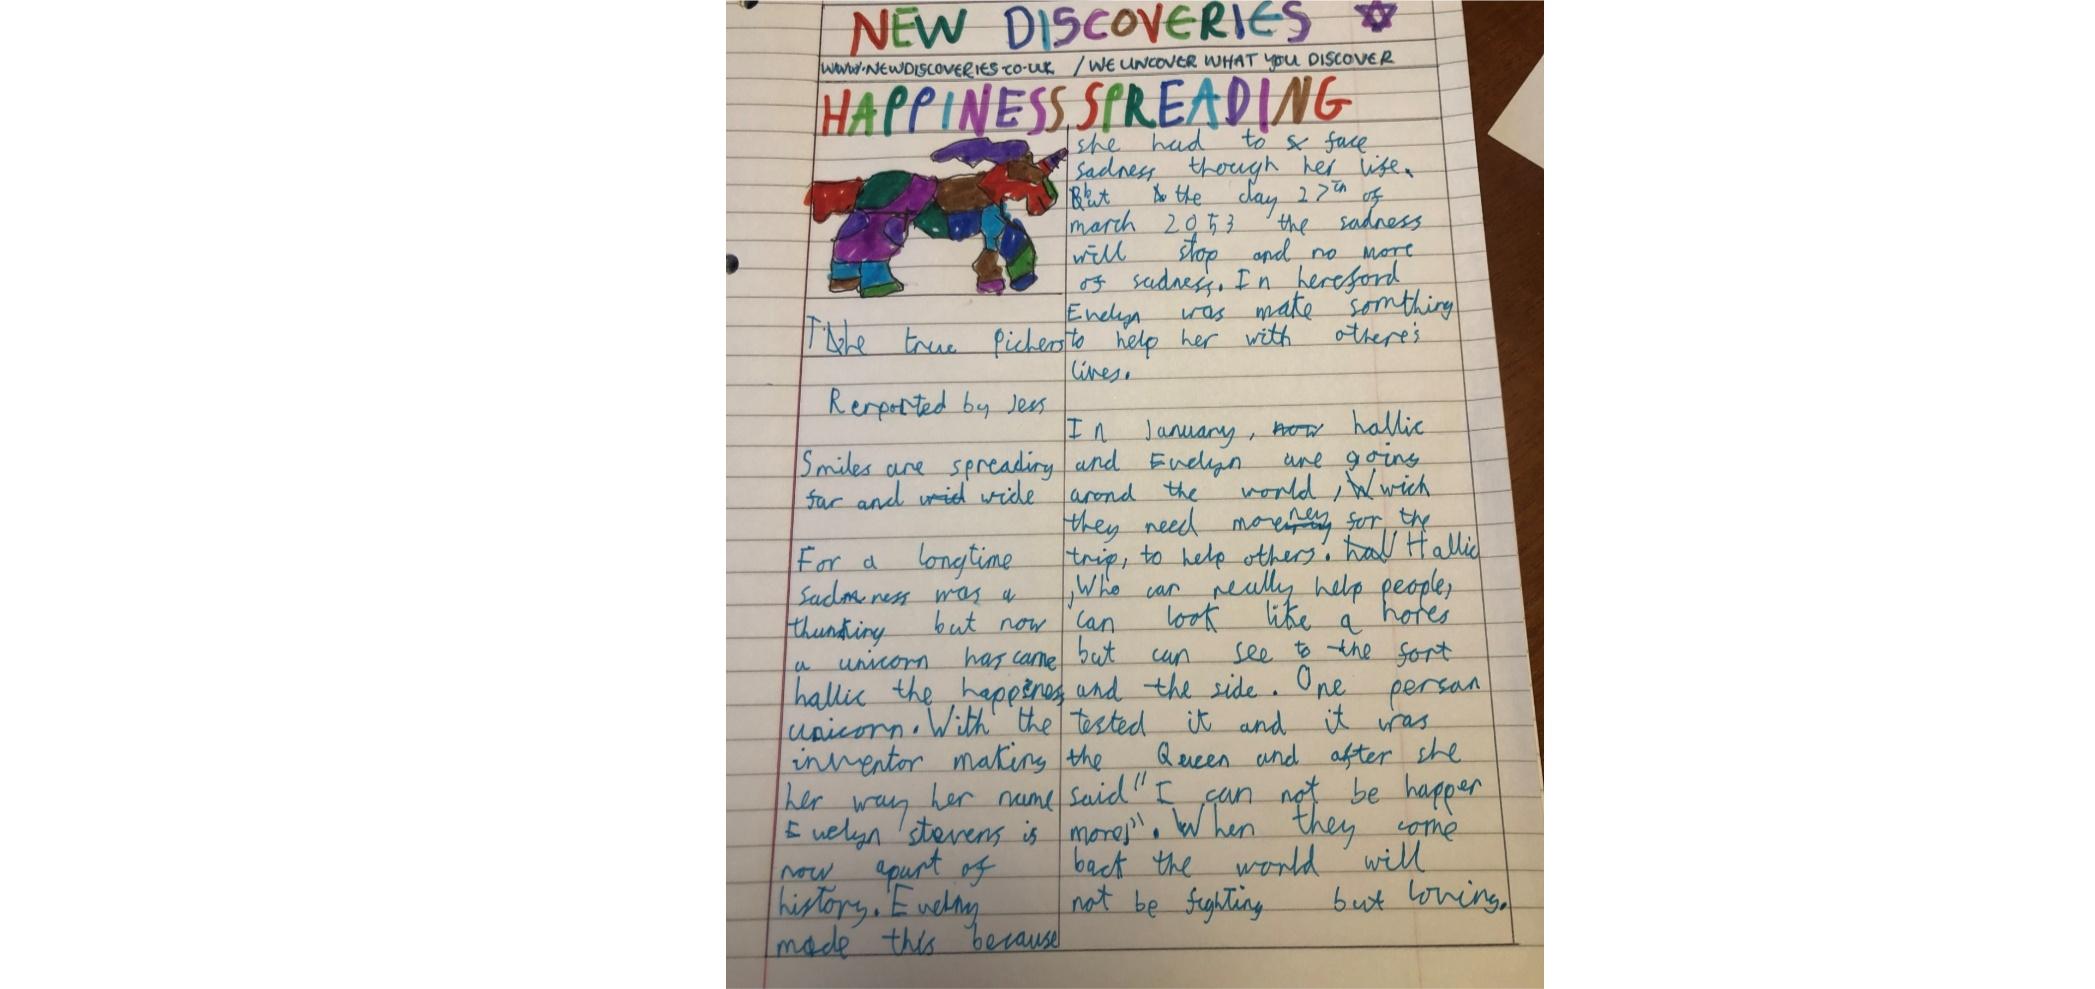 NEW DISCOVERIES
WWW.NEWDISCOVERIES.CO.UK / WE UNCOVER WHAT YOU DISCOVER
HAPPINESS SPREADING
The true Pichers
Rerported by Jess
Smiles are spreading
far and wide
For a longtime
sadness was a
thunking but now
a unicorn has came
hallic the happines
unicorn. With the
inventor making
her way her name
Evelyn stevens is
now apart of
history. Evelny
made this because
she had to face
sadness though her life.
But the day 27th of
march 2053 the sadness
will stop and no more
of sadness. In hereford
Evelyn was make somthing
to help her with othere's
lives.
In January, hallic
and Evelyn are going
arond the world, Wwich
they need moreney for the
trip, to help others. Hallic
,Who can really help people,
can look like a hores
but can see to the fort
and the side. One persan
tested it and it was
the Queen and after she
said "I can not be happer
more". When they come
back the world will
not be fighting but loving.